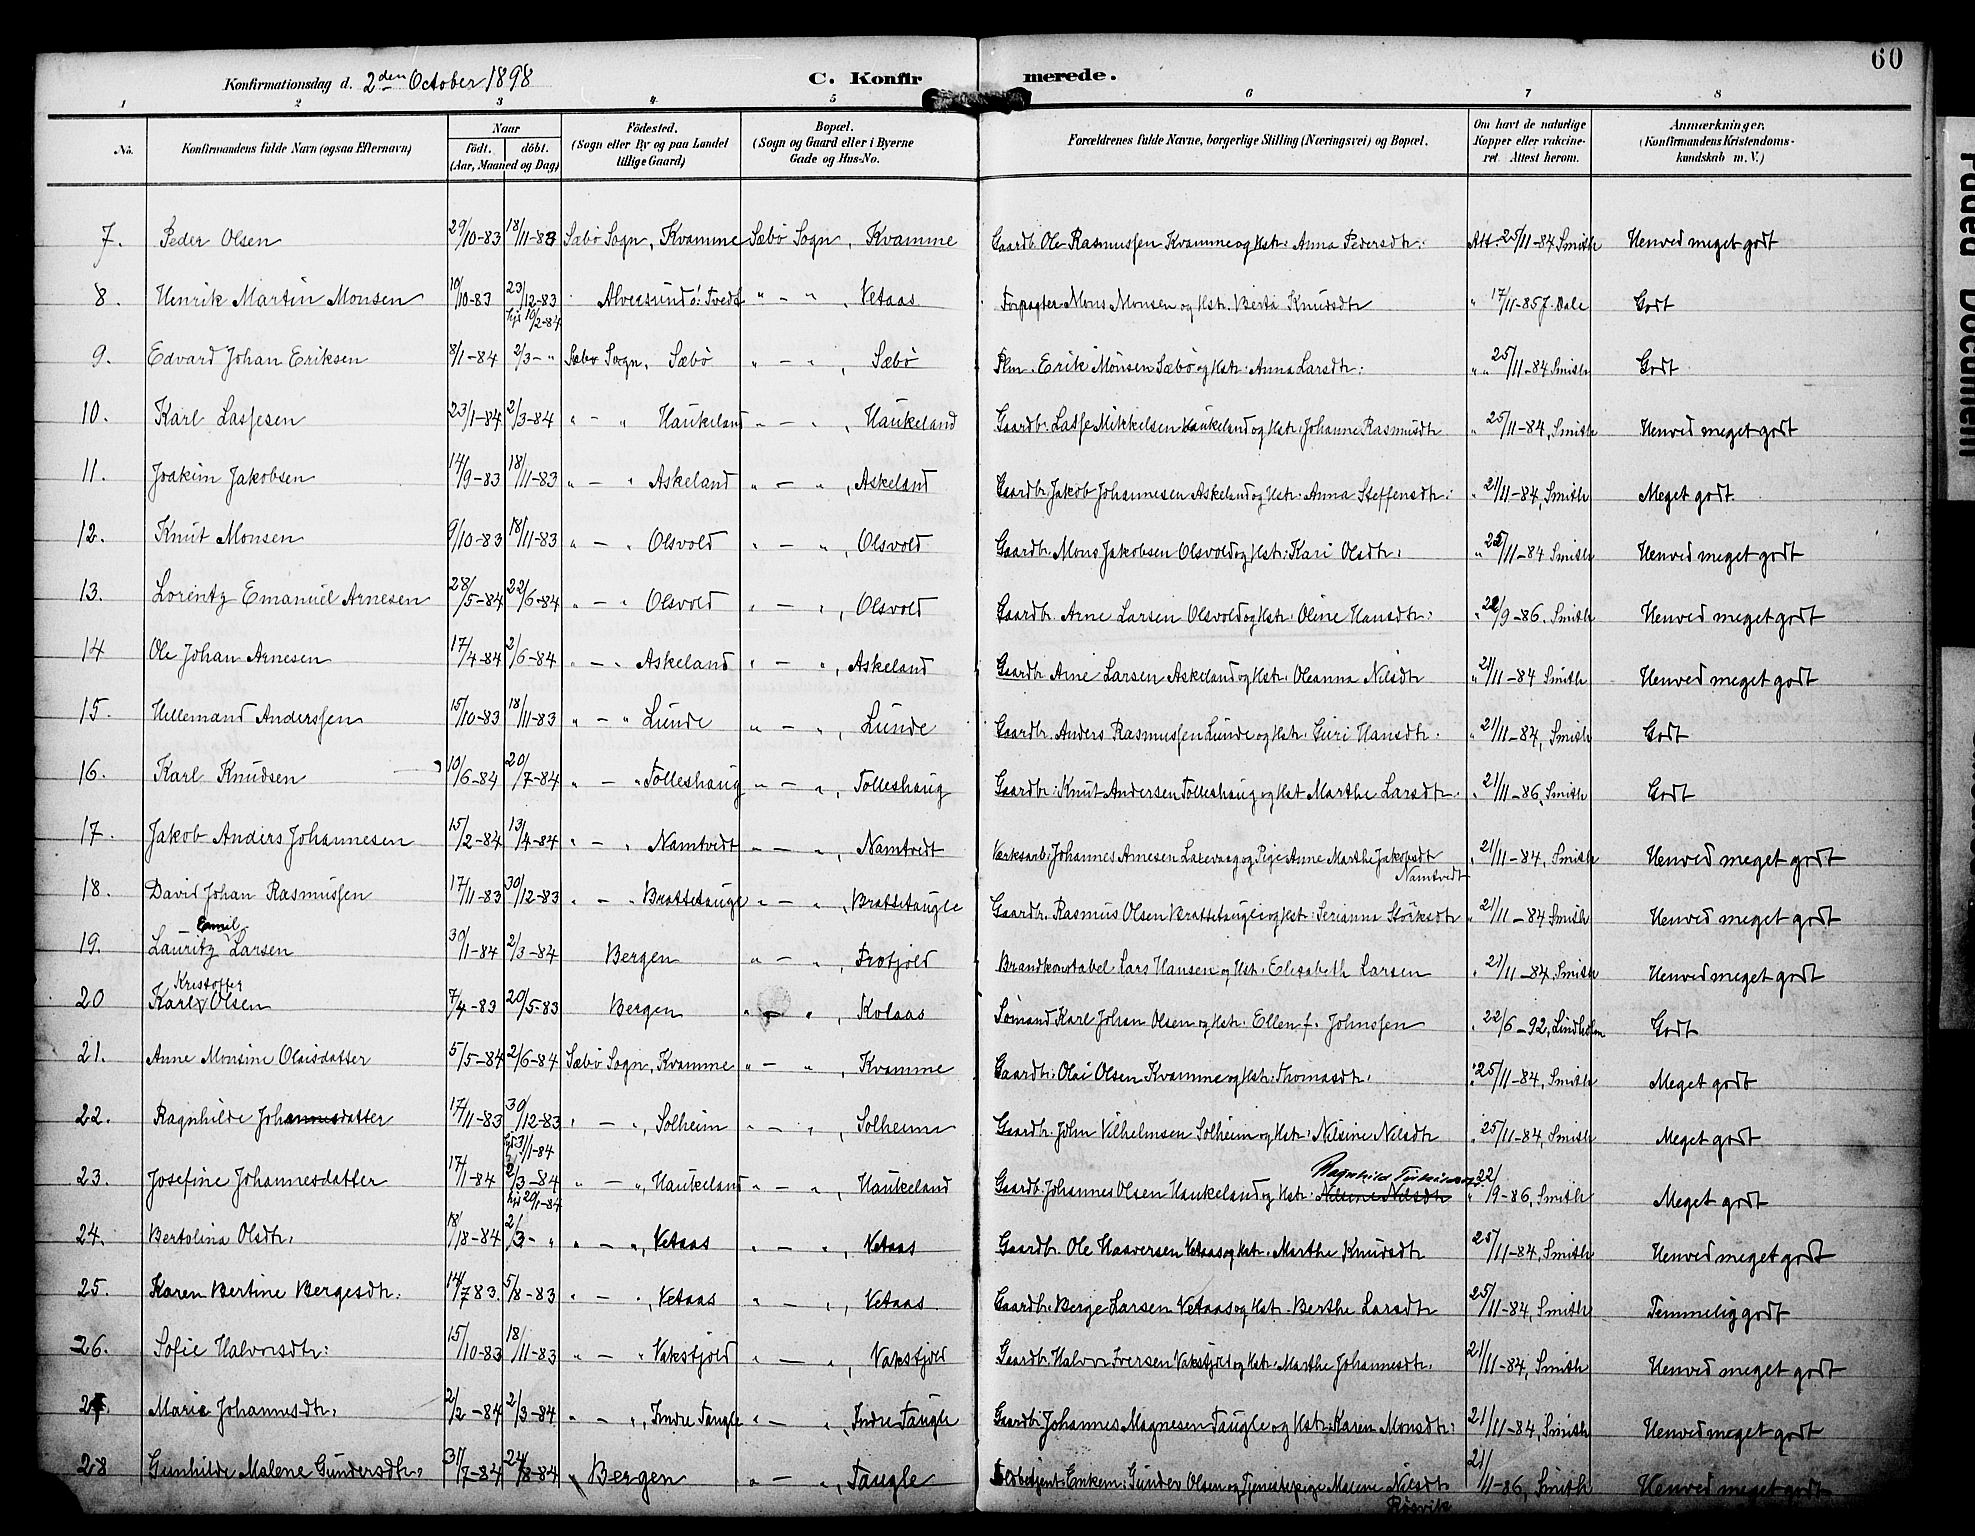 60
Konfirmationsdag d. 2den October 1898 C. Konfirmerede.
1 2 3 4 5 6 7 8
No. Konfirmandens fulde Navn (ogsaa Efternavn) Naar födt. döbt. (Aar, Maaned og Dag) Födested. (Sogn eller By og paa Landet tillige Gaard) Bopæl. (Sogn og Gaard eller i Byerne Gade og Hus-No. Forældrenes fulde Navne, borgerlige Stilling (Næringsvei) og Bopæl. Om havt de naturlige Kopper eller vakcineret. Attest herom. Anmærkninger. (Konfirmandens Kristendomskundskab m. V.)
7. Peder Olsen 29/10-83 18/11-83 Sæbö Sogn, Kvamme Sæbö Sogn, Kvamme Gaardb. Ole Rasmussen Kvamme og Hstr. Anna Pedersdtr. Att. 25/11-84 Smith Henved meget godt
8. Henrik Martin Monsen 10/10-83 23/12-83 10/2-84 Alversund s: Tvedt " - ", Vetaas Forpagter Mons Monsen og Hstr. Berta Knudsdtr " 17/11-85 J. Dale Godt
9. Edvard Johan Eriksen 8/1-84 2/3- " Sæbø Sogn, Sæbö " - ", Sæbö Erik Monsen Sæbö og Hstr. Anna Larsdtr. " " 25/11-84 Smith Godt
10. Karl Lassesen 23/1-84 2/3-84 " - " Haukeland " - ", Haukeland Gaardbr. Lasse Mikkelsen Haukeland og Hstr. Johanne Rasmusdtr " 25/11-84, Smith Henved meget godt
11. Joakim Jakobsen 14/9-83 18/11-83 " - " Askeland " - ", Askeland Gaardbr. Jakob Johannesen Askeland og Hstr. Anna Steffensdtr. " 21/11-84, Smith Meget godt
12. Knut Monsen 9/10-83 18/11-83 " - " Olsvold " - ", Olsvold Gaardbr. Mons Jakobsen Olsvold og Hstr. Kari Olsdtr. " 25/11-84 Smith Henved meget godt
13. Lorentz Emanuel Arnesen 28/5-84 22/6-84 " - " Olsvold " - ", Olsvold Gaardbr. Arne Larsen Olsvold og Hstr. Oline Hansdtr. " 22/9-86. Smith Henved meget godt
14 Ole Johan Arnesen 17/4-84 2/6-84 " - " Askeland " - ", Askeland Gaardbr. Arne Larsen Askeland og Hstr. Oleanna Nilsdtr " 21/11-84 Smith Henved meget godt
15. Hellemand Anderssen 15/10-83 18/11-83 " - " Lunde " - ", Lunde Gaardbr. Anders Rasmussen Lunde og Hstr. Guri Hansdtr. " 21/11-84, Smith Godt
16. Karl Knudsen 10/6-84 20/7-84 " - " Tolleshaug " - ", Tolleshaug Gaardbr. Knut Andersen Tolleshaug og Hst Marthe Larsdtr. " 21/11-86, Smith Godt
17. Jakob Anders Johannesen 15/2-84 13/4-84 " - " Namtvedt " - ", Namtvedt Værksarb. Johannes Arnesen Laxevaag og Pige Anne Marthe Jakobsdtr Namtvedt " 21/11-84, Smith Henved meget godt
18. David Johan Rasmussen 17/11-83 30/12-83 " - " Brattetaugle " - ", Brattetaugle Gaardbr. Rasmus Olsen Brattetaugle og Hstr. Serianna Störksdtr " 21/11-84 Smith Henved meget godt
Emil
19. Lauritz Larsen 30/1-84 2/3-84 Bergen " - ", Brandkonstabel Lars Hansen og Hstr. Elisabeth Larsen " 21/11-84, Smith Henved meget godt
Kristoffer
20 Karl Olsen 7/4-83 20/5-83 Bergen " - ", Kolaas Sømand Karl Johan Olsen og Hstr. Ellen f. Johnsen " 22/6-92, Lindholm Godt
21. Anne Monsine Olaisdatter 5/5-84 2/6-84 Sæbö Sogn, Kvamme " - ", Kvamme Gaardbr. Olai Olsen Kvamme og Hstr. Thomasdtr. " 25/11-84, Smith Meget godt
22. Ragnhilde Johannesdatter 17/11-83 30/12-83 31/1-84 " - ", Solheim " - ", Solheim Gaardbr. John Vilhelmsen Solheim og Hstr. Nilsine Nilsdtr " 25/11-84, Smith Meget godt
23. Josefine Johannesdatter 17/1-84 2/3-84 20/1-84 " - ", Haukeland " - ", Haukeland Gaardb. Johannes Olsen Haukeland og Hstr. Nilsine Nilsdtr Ragnhild " 22/9-86, Smith Meget godt
24. Bertolina Olsdtr. 18/18-84 2/3- " " - ", Vetaas " - ", Vetaas Gaardbr. Ole Haaversen Vetaas og Hstr. Marthe Knudsdtr 25/11-84, Smith Henved meget godt
25. Karen Bertine Bergesdtr. 14/7 83. 5/8-83 " - ", Vetaas " - ", Vetaas Gaardbr. Berge Larsen Vetaas og Hstr. Berthe Larsdtr 25/11-84, Smith Temmelig godt
26. Sofie Halvorsdtr. 15/10-83 18/11-83 " - " Vakstjold " - ", Vakstjold Gaardbr. Halvor Iversen Vakstjold og Hstr. Marthe Johannesdtr. 21/11-84, Smith Henved meget godt
27. Marie Johannesdtr. 2/2-84 2/3-84 " - ", Indre Taugle " - ", Indre Taugle Gaardbr. Johannes Magnesen Taugle og Hstr. Karen Monsdtr. 21/11-84, Smith Henved meget godt
28 Gunhilde Malene Gundersdtr. 31/7-84 24/8-84 Bergen " - ", Taugle Enkem. Gunder Olsen og Tjenestepige Malene Nilsdtr Rosvik 21/1-86, Smith Henved meget godt